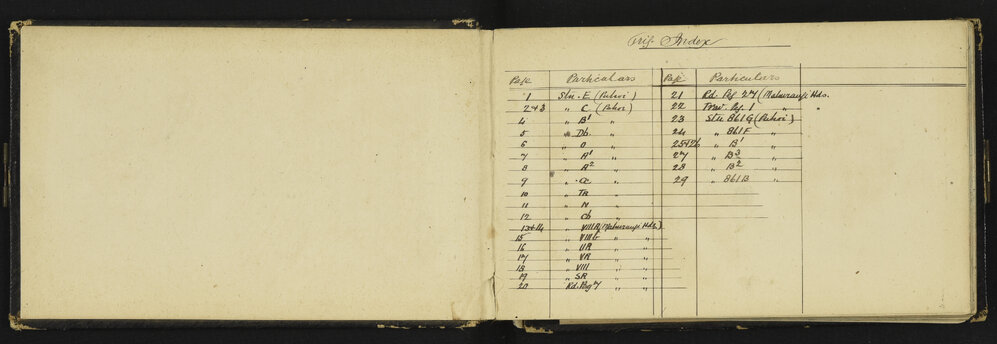 Trig. Index
Page Particulars Page Particulars
1 Stn. E. (Puhoi) 21 Rd. Peg 27 (Mahurangi Hds.
2+3 " C (Puhoi) 22 Trav. Peg 1 " "
4 " B1 " 23 Stn 861G (Puhoi)
5 " Db " 24 " 861F "
6 " O " 25+26 " B1 "
7 " A1 " 27 " B3 "
8 " A2 " 28 " B2 "
9 " a " 29 " 861B "
10 " TR "
11 " N "
12 " Cb "
13+14 " VIIIB (Mahurangi Hds.)
15 " " "
16 " UR " "
17 " VR " "
18 " VIII " "
19 " SR " "
20 Rd. Peg 7 " "